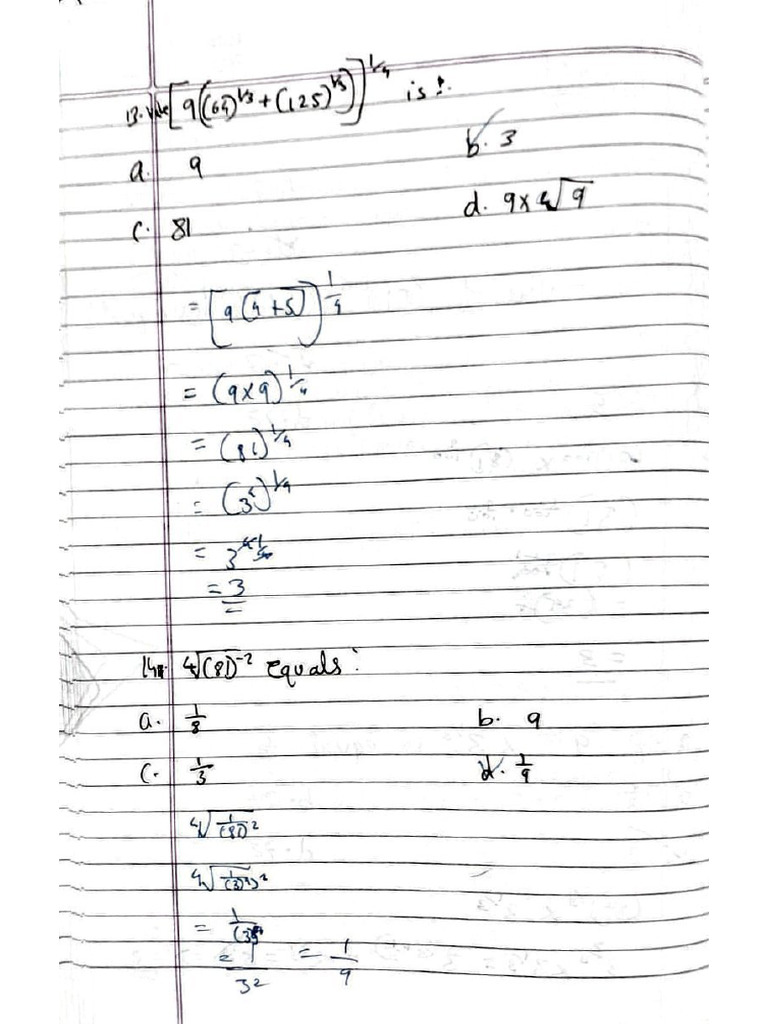 13. Value [9((64)^1/3 + (125)^1/3)]^1/4 is :
a. 9 b. 3
c. 81 d. 9×4√9
= [9(4+5)]^1/4
= (9×9)^1/4
= (81)^1/4
= (3^4)^1/4
= 3^4×1/4
= 3
14. 4√(81)^-2 equals :
a. 1/8 b. 9
c. 1/3 d. 1/9
4√1/(81)^2
4√1/((3)^4)^2
= 1/(3)
= 1/3^2 = 1/9